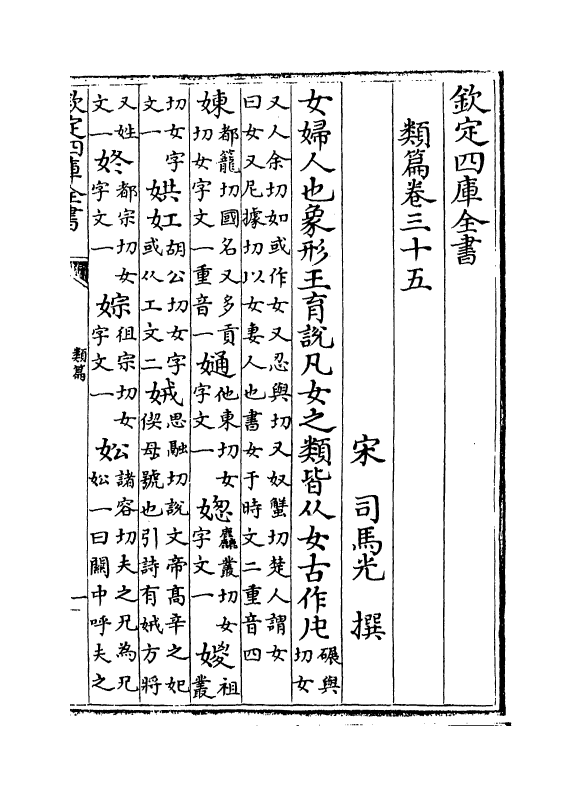 欽定四庫全書
類篇卷三十五
宋 司馬光 撰
女婦人也象形王育說凡女之類皆从女古作 碾與切女
又人余切如或作女又忍與切又奴蟹切楚人謂女
曰女又尼據切以女妻人也書女于時文二重音四
娻 都籠切國名又多貢切女字文一重音一 他東切女字文一 麤叢切女字文一 祖叢
切女字文一 胡公切女字或从工文二 娀 思融切說文帝高辛之妃偰母號也引詩有娀方將
又姓文一 㚵 都宗切女字文一 婃 徂宗切女字文一 妐 諸容切夫之兄為兄妐一曰關中呼夫之
欽定四庫全書
類篇
一